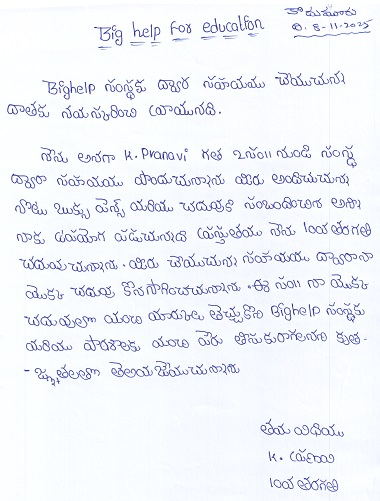 Big help for education
కొడుమూరు
ది. 8-11-2025
Bighelp సంస్థకు ద్వారా సహాయము చేయుచున్న
దాతకు నమస్కరించి వ్రాయునది.
నేను అనగా K. Pranavi గత 2సం॥ నుండి సంస్థ
ద్వారా సహాయము పొందుచున్నాను మీరు అందించుచున్న
నోటు బుక్కు పెన్స్ మరియు చదువుకి సంబంధించిన అన్ని
నాకు ఉపయోగ పడుచున్నాది ప్రస్తుతము నేను 10వ తరగతి
చదువుచున్నాను. మీరు చేయుచున్న సహాయము ద్వారా నా
యొక్క చదువు కొనసాగించుచున్నాను. ఈ సం॥ నా యొక్క
చదువులో మంచి మార్కులు తెచ్చుకొని Bighelp సంస్థకు
మరియు పాఠశాలకు మంచి పేరు తీసుకురాగలనని కృత-
- జ్ఞతలతో తెలియజేయుచున్నాను
తమ విధేయు
K. ప్రణవి
10వ తరగతి